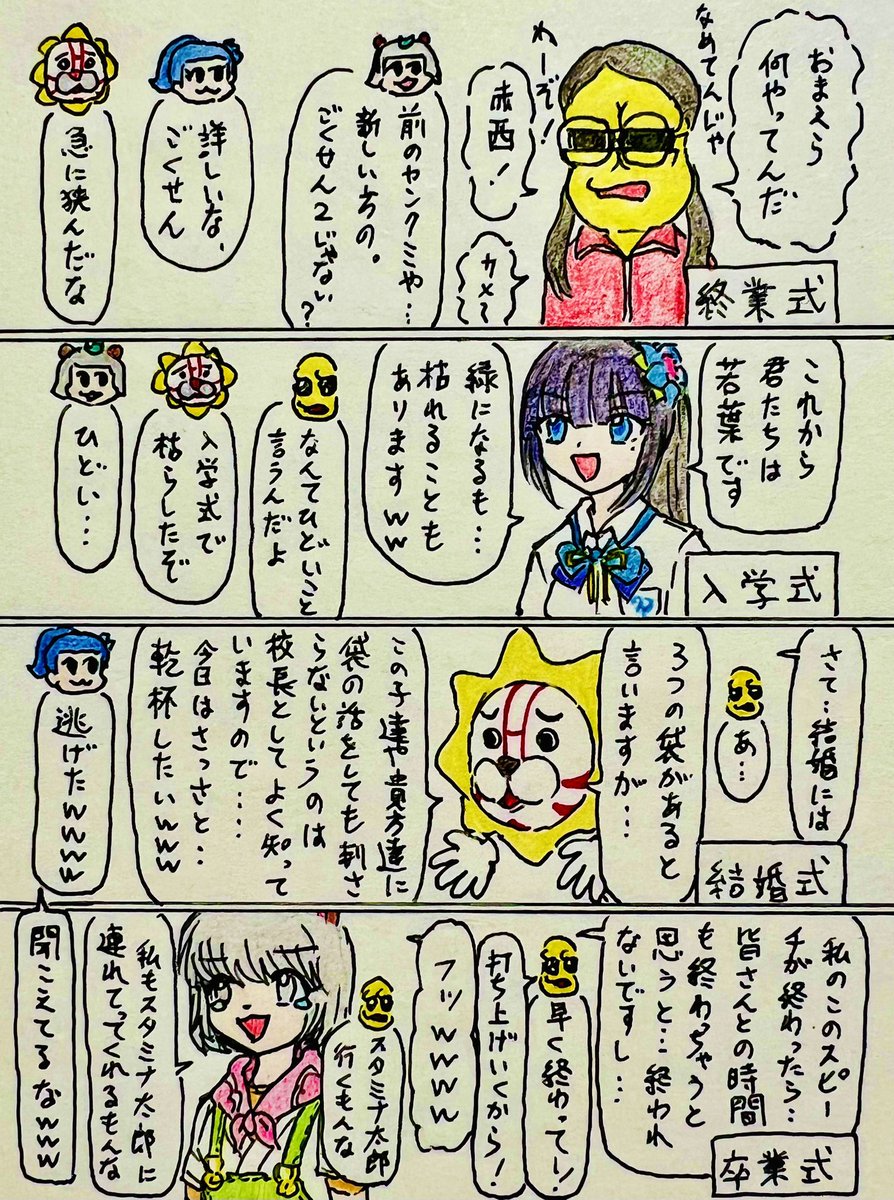 終業式
おまえら
何やってんだ
なめてんじゃ
ねーぞ!
赤西!
カメ〜
前のヤンクミや…
新しい方の。
ごくせん2じゃない?
詳しいな、
ごくせん
急に狭んだな
入学式
これから
君たちは
若葉です
緑になるも…
枯れることも
ありますww
なんてひどいこと
言うんだよ
入学式で
枯らしたぞ
ひどい…
結婚式
さて…結婚には
あ…
3つの袋があると
言いますが…
この子達や貴方達に
袋の話をしても刺さ
らないというのは
校長としてよく知って
いますので….
今日はさっさと..
乾杯したいwww
逃げたwwww
卒業式
私のこのスピー
チが終わったら…
皆さんとの時間
も終わっちゃうと
思うと…終われ
ないですし…
早く終わってー!
打ち上げいくから!
フッwwww
スタミナ太郎
行くもんな
私もスタミナ太郎に
連れてってくれるもんな
聞こえてるなwww